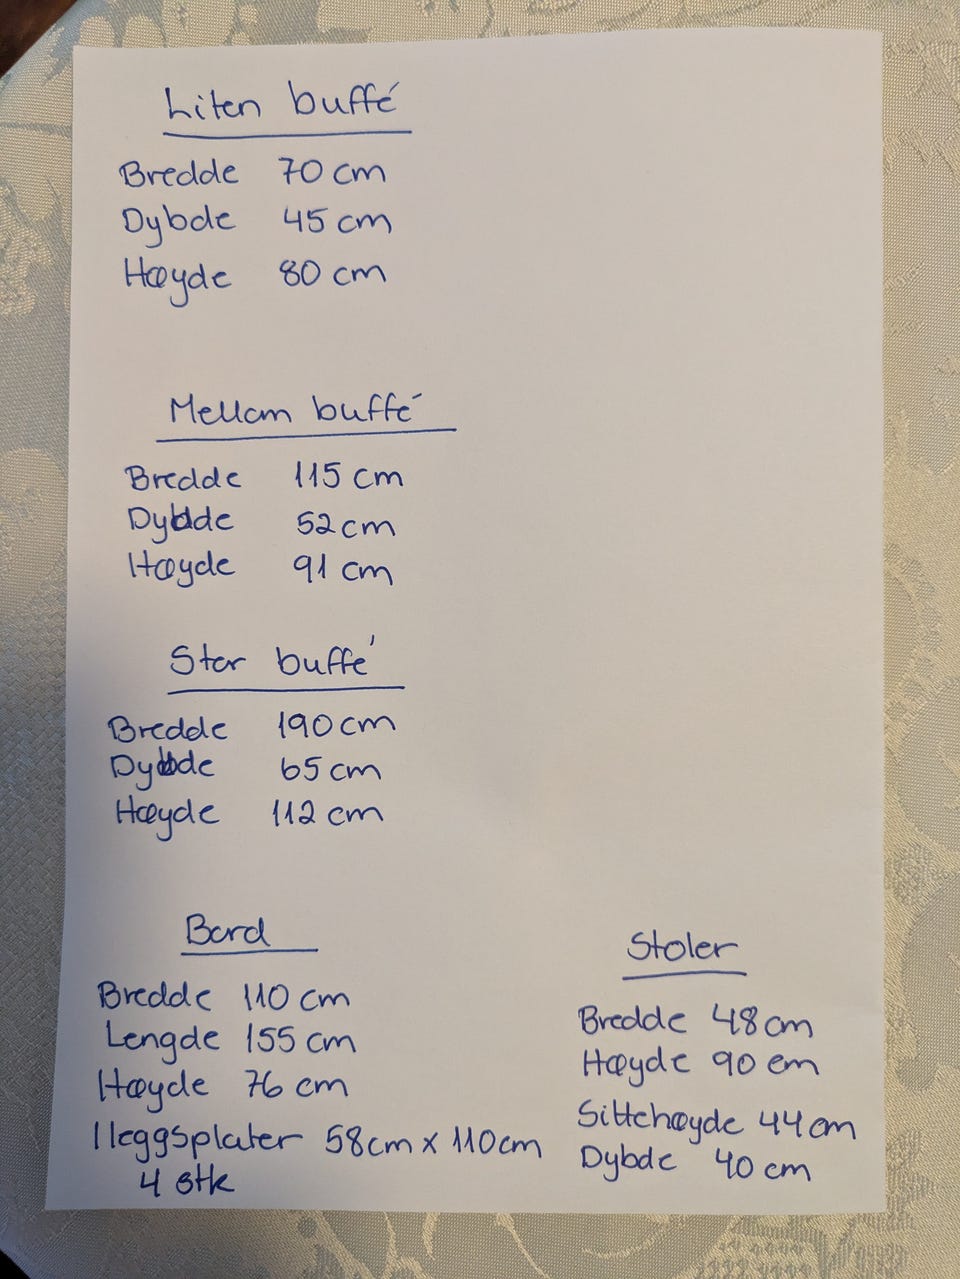 Liten buffé
Bredde 70 cm
Dybde 45 cm
Høyde 80 cm
Mellom buffé
Bredde 115 cm
Dybde 52 cm
Høyde 91 cm
Stor buffé
Bredde 190 cm
Dybde 65 cm
Høyde 112 cm
Bord
Bredde 110 cm
Lengde 155 cm
Høyde 76 cm
Ileggsplater 58cm x 110cm
4 stk
Stoler
Bredde 48 cm
Høyde 90 cm
Sittehøyde 44 cm
Dybde 40 cm